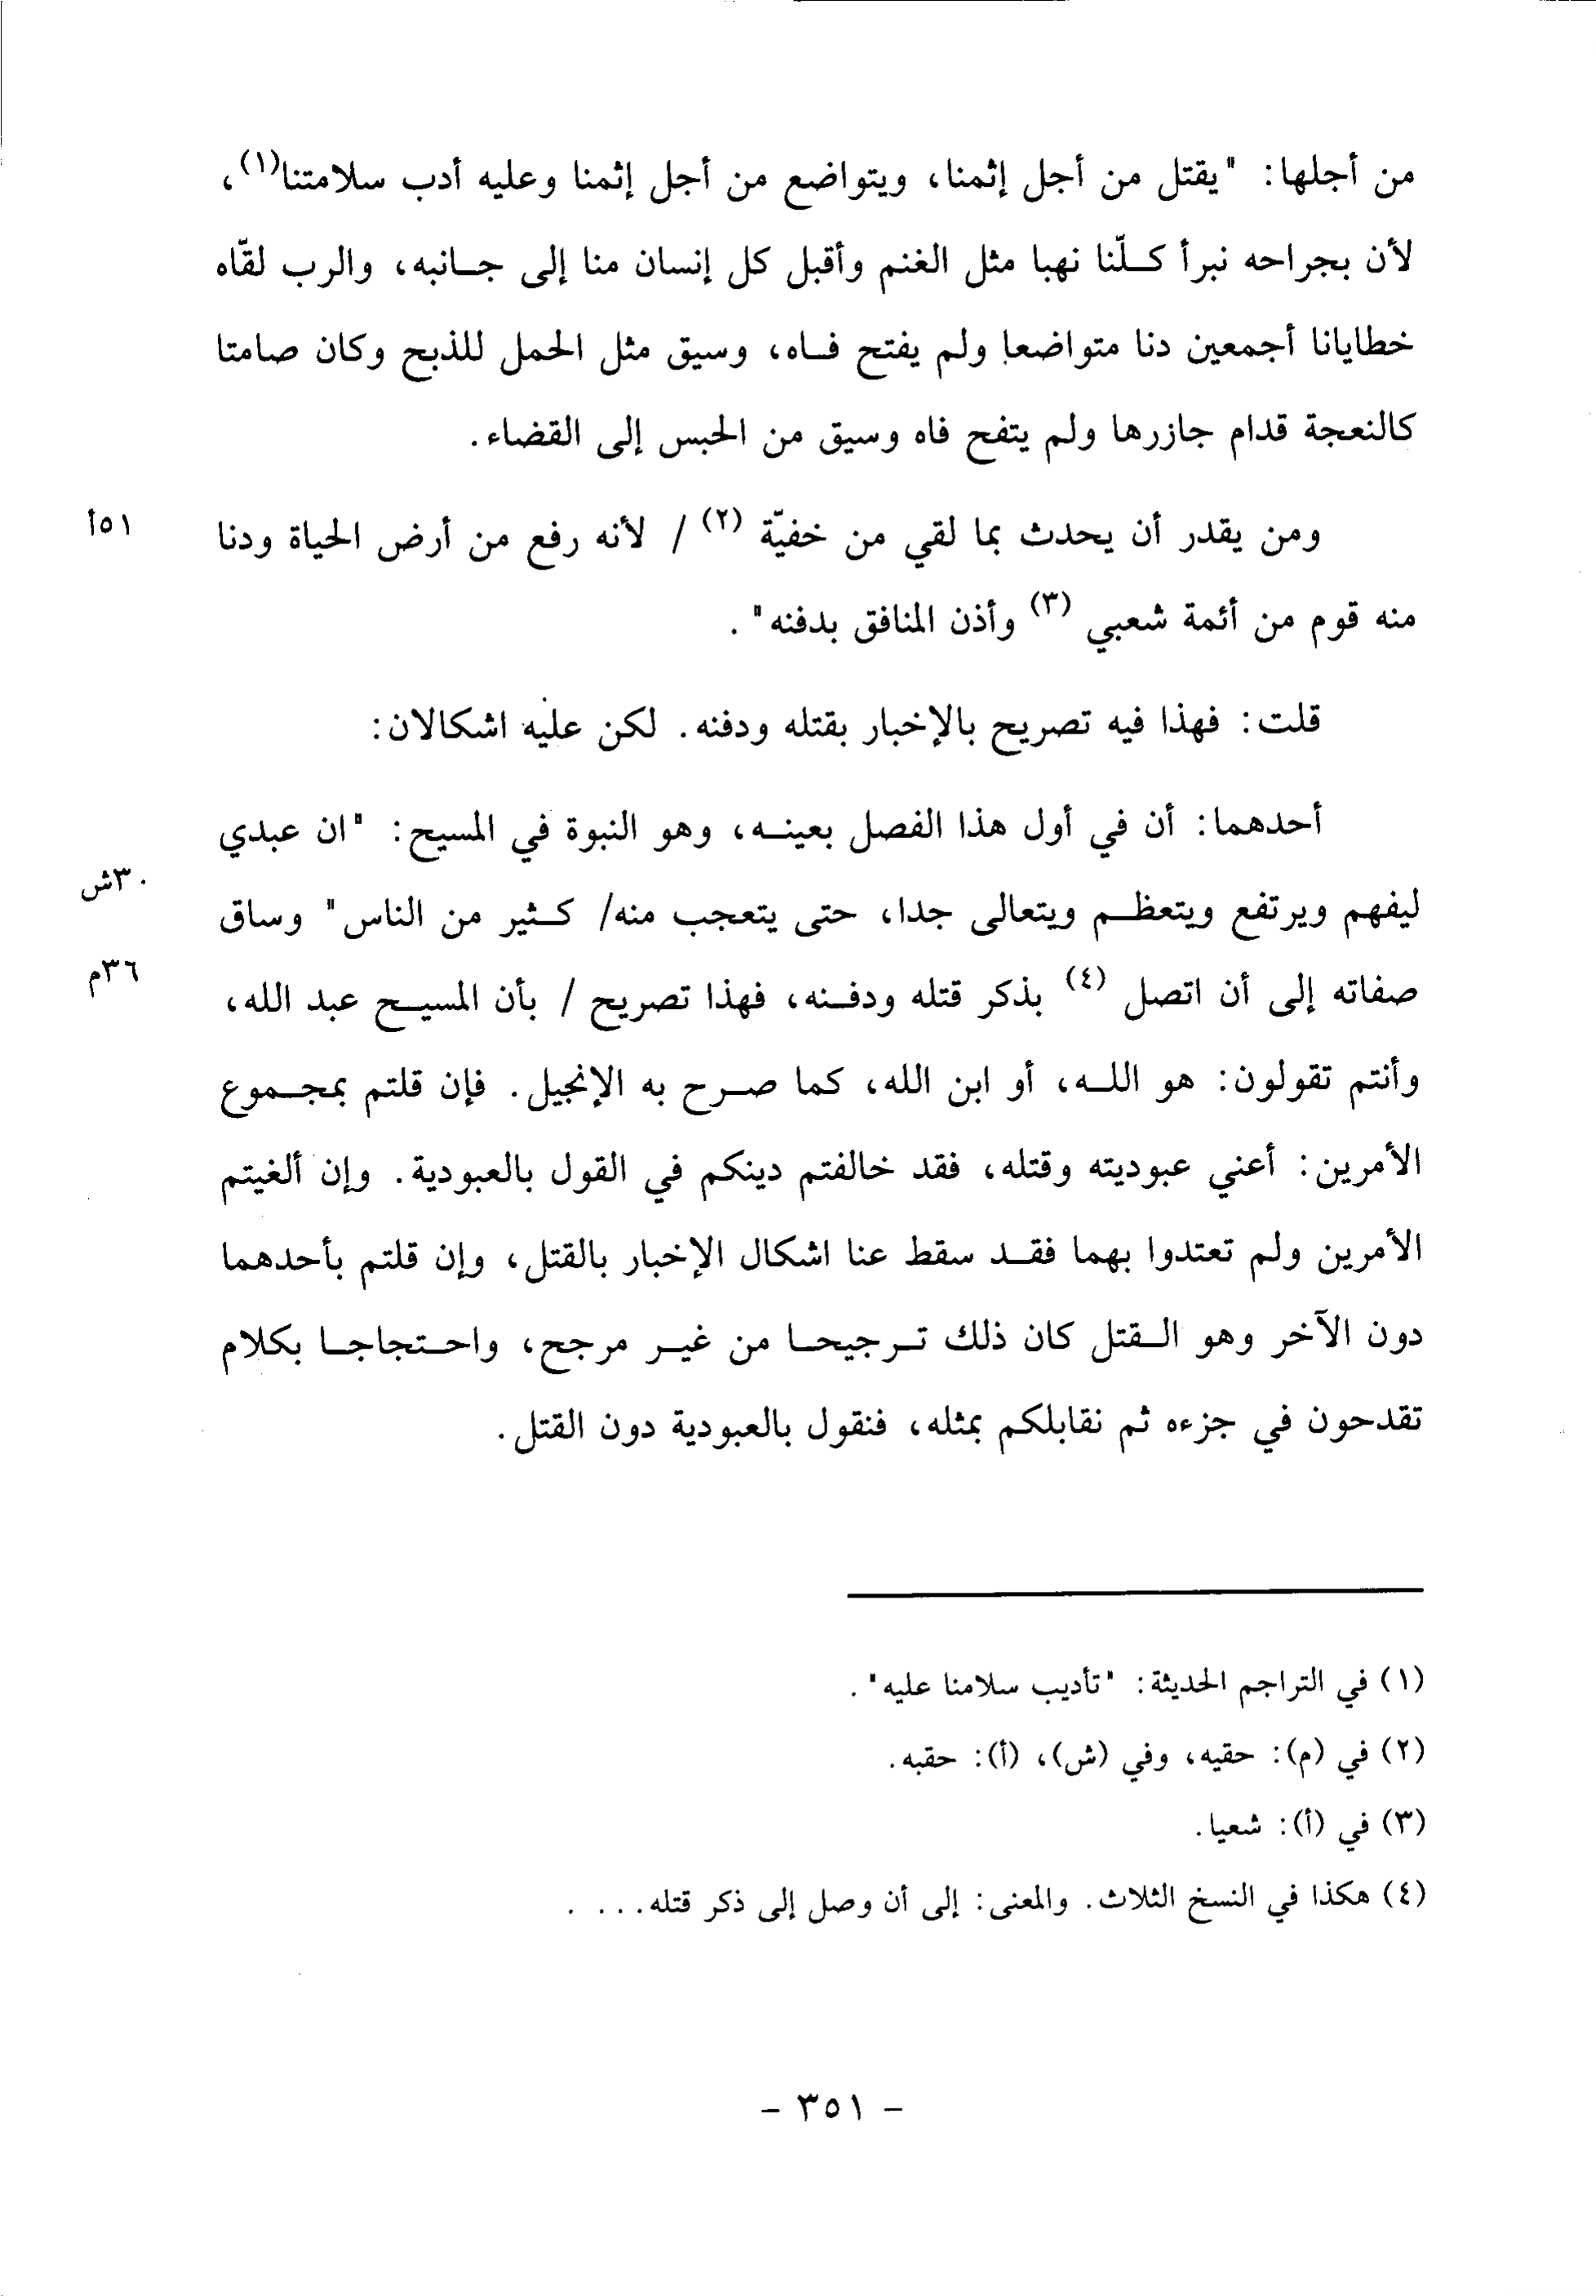 من أجلها: "يقتل من أجل إثمنا، ويتواضع من أجل إثمنا وعليه أدب سلامتنا(١)،
لأن بجراحه نبرأ كلّنا نهبا مثل الغنم وأقبل كل إنسان منا إلى جانبه، والرب لقّاه
خطايانا أجمعين دنا متواضعا ولم يفتح فاه، وسيق مثل الحمل للذبح وكان صامتا
كالنعجة قدام جازرها ولم يتفح فاه وسيق من الحبس إلى القضاء.
ومن يقدر أن يحدث بما لقي من خفيّة (٢) / لأنه رفع من أرض الحياة ودنا
٥١أ
منه قوم من أئمة شعبي (٣) وأذن المنافق بدفنه".
قلت: فهذا فيه تصريح بالإخبار بقتله ودفنه. لكن عليه اشكالان:
أحدهما: أن في أول هذا الفصل بعينه، وهو النبوة في المسيح: "ان عبدي
ليفهم ويرتفع ويتعظم ويتعالى جدا، حتى يتعجب منه/ كثير من الناس" وساق
٣٠ش
صفاته إلى أن اتصل (٤) بذكر قتله ودفنه، فهذا تصريح / بأن المسيح عبد الله،
٣٦م
وأنتم تقولون: هو الله، أو ابن الله، كما صرح به الإنجيل. فإن قلتم بمجموع
الأمرين: أعني عبوديته وقتله، فقد خالفتم دينكم في القول بالعبودية. وإن ألغيتم
الأمرين ولم تعتدوا بهما فقد سقط عنا اشكال الإخبار بالقتل، وإن قلتم بأحدهما
دون الآخر وهو القتل كان ذلك ترجيحا من غير مرجح، واحتجاجا بكلام
تقدحون في جزءه ثم نقابلكم بمثله، فنقول بالعبودية دون القتل.
(١) في التراجم الحديثة: "تأديب سلامنا عليه".
(٢) في (م): حقيه، وفي (ش)، (أ): حقبه.
(٣) في (أ): شعيا.
(٤) هكذا في النسخ الثلاث. والمعنى: إلى أن وصل إلى ذكر قتله. . . .
- ٣٥١ -